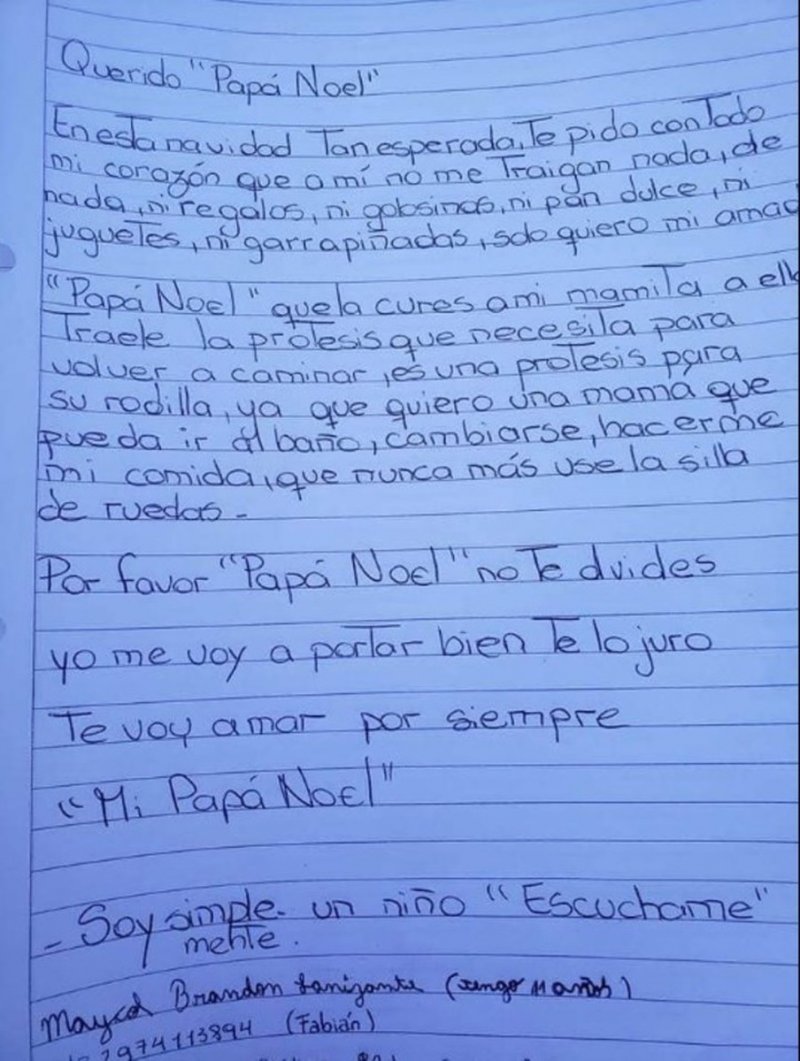 Querido "Papá Noel"
En esta navidad Tan esperada, Te pido con Todo
mi corazón que a mí no me Traigan nada, de
nada, ni regalos, ni gobsinas, ni pan dulce, ni
juguetes, ni garrapiñadas, solo quiero mi amado
"Papá Noel" que la cures a mi mamiTa a ella
Traele la proTesis que necesiTa para
volver a caminar, es una proTesis para
su rodilla, ya que quiero una mamá que
pueda ir al baño, cambiarse, hacerme
mi comida, que nunca más use la silla
de ruedas -
Por favor "Papá Noel" no Te olvides
yo me voy a porTar bien Te lo juro
Te voy amar por siempre
"Mi Papá Noel"
- Soy simple- un niño "Escuchame"
menTe.
Brandon (Tengo 11 años)
2974113894 (Fabián)